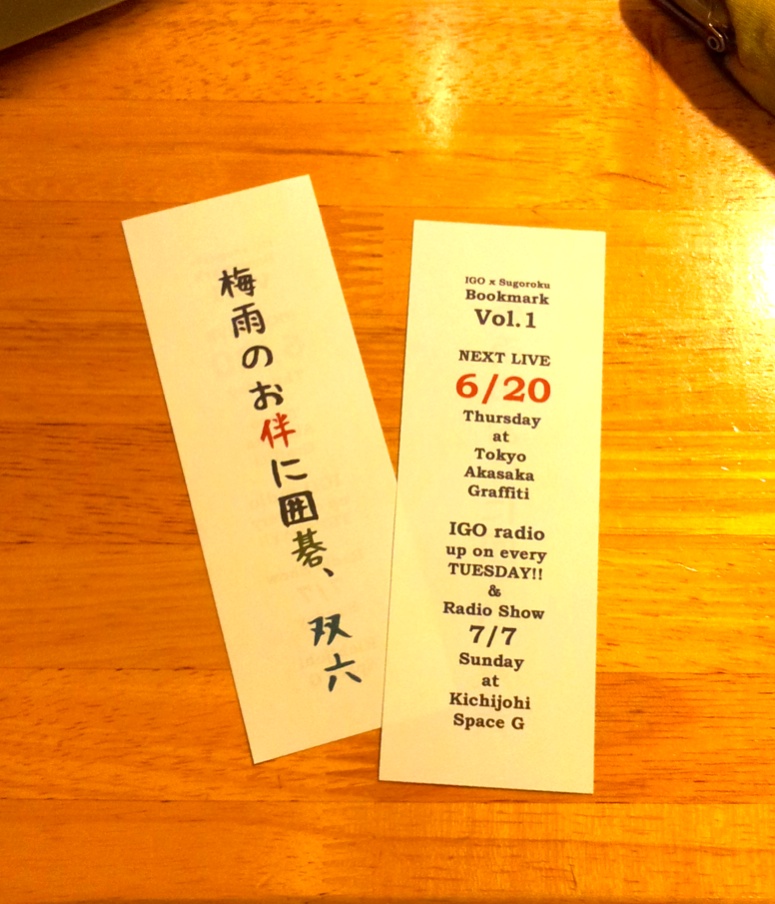 梅雨のお伴に囲碁、双六
IGO x Sugoroku
Bookmark
Vol.1
NEXT LIVE
6/20
Thursday
at
Tokyo
Akasaka
Graffiti
IGO radio
up on every
TUESDAY!!
&
Radio Show
7/7
Sunday
at
Kichijohi
Space G